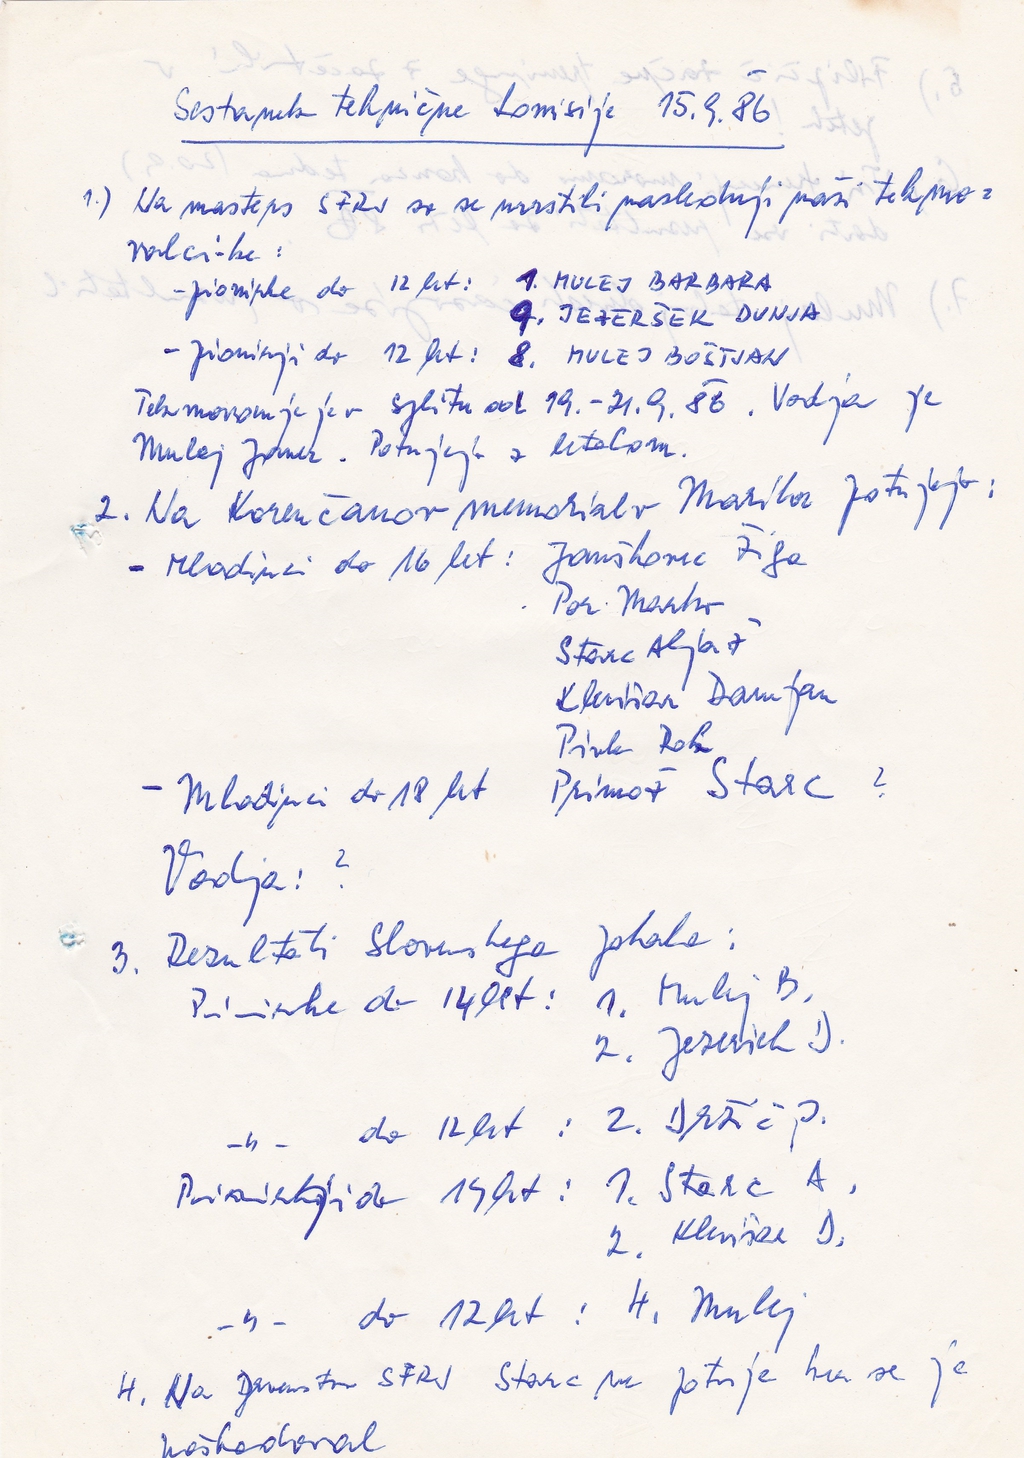 Sestanek tehnične komisije 15.9.86
1.) Na masters SFRJ so se uvrstili naslednji naši tekmo=
valci-ke:
- pionirke do 12 let: 1. MULEJ BARBARA
9. JEZERŠEK DUNJA
- pionirji do 12 let: 8. MULEJ BOŠTJAN
Tekmovanje je v Splitu od 19.-21.9.86. Vodja je
Mulej Janez. Potujejo z letalom.
2. Na Korenčanov memorial v Maribor potujejo:
- Mladinci do 16 let: Janškovec Žiga
Por Marko
Starc Aljaž
Klenišar Damjan
Pink Rok
- Mladinci do 18 let Primož Starc ?
Vodja: ?
3. Rezultati Slovenskega pokala:
Pionirke do 14 let: 1. Mulej B.
2. Jezeršek D.
-"- do 12 let: 2. Držič P.
Pionirji do 14 let: 1. Starc A.
2. Klenišar D.
-"- do 12 let: 4. Mulej
4. Na Prvenstvo SFRJ Starc ne potuje ker se je
poškodoval